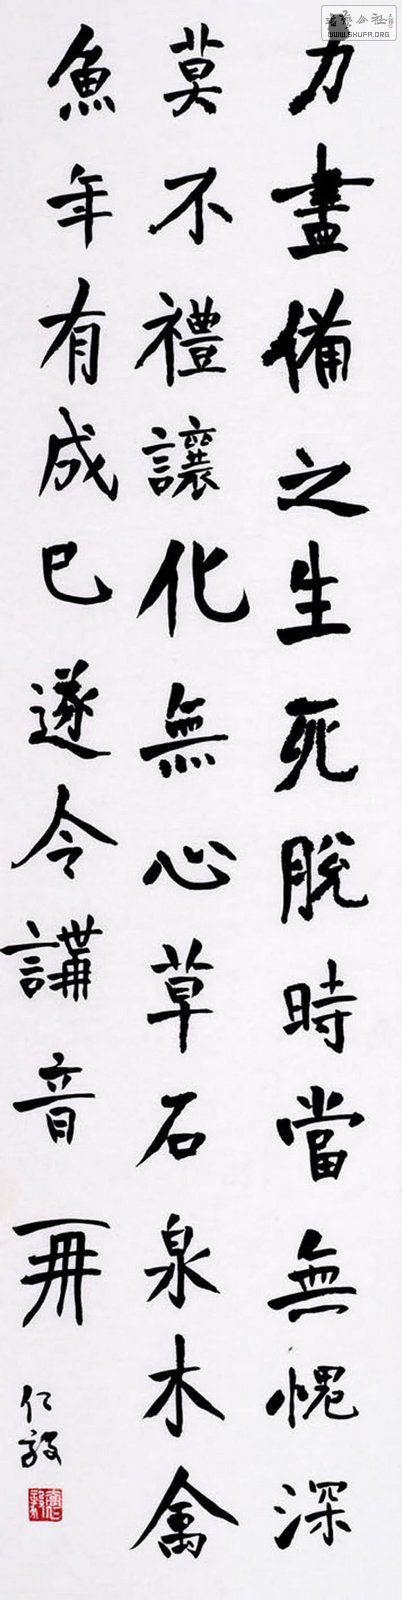 力盡備之生死脫時當無愧深
莫不禮讓化無心草石泉木禽
魚年有成已遂令講音再
仁毅
WWW.SHUFA.ORG